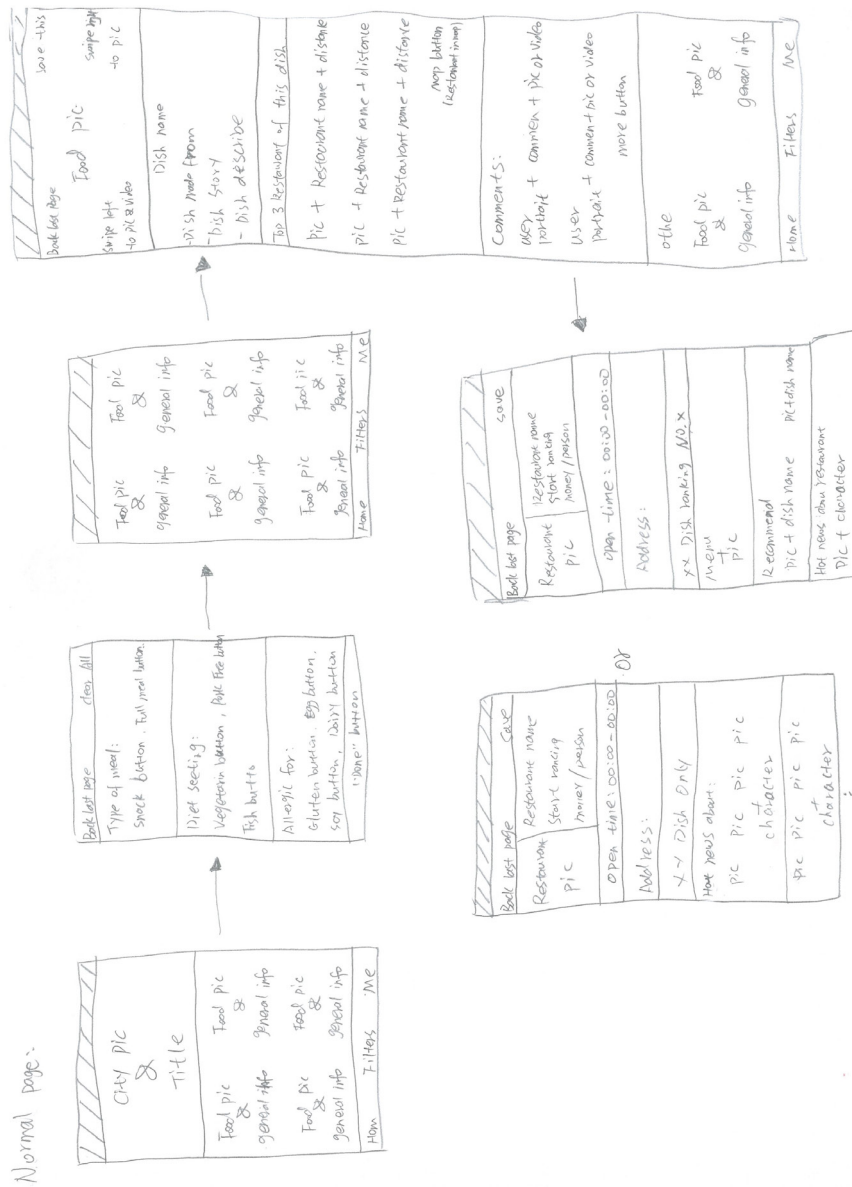 Normal page:
City pic
&
Title
Food pic
&
general info
Food pic
&
general info
Food pic
&
general info
Food pic
&
general info
Hom Filters Me
Back last page clear All
Type of meal:
Snack button. Full meal button.
Diet seeting:
Vegetarin button, Pork Free button
Fish butto
Allergic for:
Gluten button. Egg button.
soy button, Dairy button
"Done" button
Food pic
&
general info
Food pic
&
general info
Food pic
&
general info
Food pic
&
general info
Food pic
&
general info
Food pic
&
general info
Home Filters Me
Back last page save this
Food pic
swipe left
to pic & video
swipe right
to pic
Dish name
-Dish made from
-Dish story
-Dish describe
Top 3 Restaurant of this dish
pic + Restaurant name + distance
pic + Restaurant name + distance
pic + Restaurant name + distance
map button
(Restaurant in map)
Comments:
user
portrait + commen + pic or video
User
portrait + commen + pic or video
more button
othe
Food pic
&
general info
Food pic
&
general info
Home Filters Me
Back last page Save
Restaurant
pic
Restaurant name
Start rancing
money/person
open time: 00:00-00:00
Address:
x-x Dish Only
news about:
pic pic pic pic
+
character
pic pic pic pic
+
character
or
Back last page save
Restaurant
pic
Restaurant name
start ranking
money/person
open-time: 00:00-00:00
Address:
xx Dish ranking NO.x
Menu
+
pic
Recommend
pic + dish name pic + dish name
Hot news abou restaurant
Pic + character